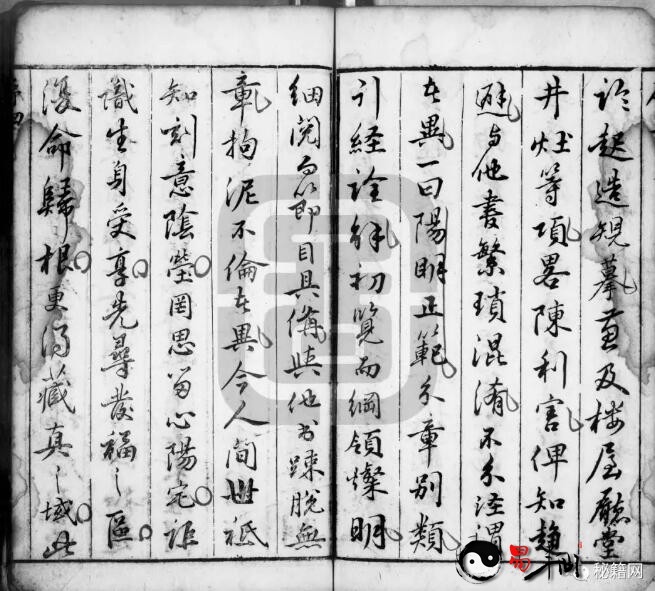 論起造規摹並及楼屋廳堂
井灶等項畧陳利害俾知趋
避与他書繁瑣混淆不分涇渭
者異一曰陽明正範分章别類
引経詮解初覽而綱領燦明
细閲而即目具俻與他书踈脱無
章拘泥不倫者異今人間世祗
知刻意陰塋罔思留心陽宅詎
識生身受享先尋發福之區
復命歸根更得藏真之域此
易
秘籍网